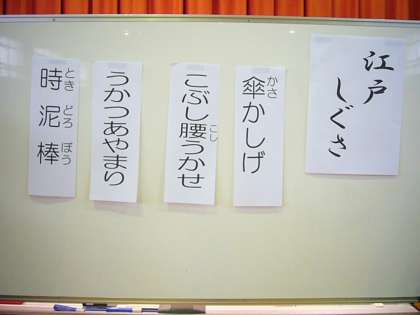 江戸
しぐさ
傘かしげ
かさ
こぶし腰うかせ
こし
うかつあやまり
時泥棒
とき どろ ぼう